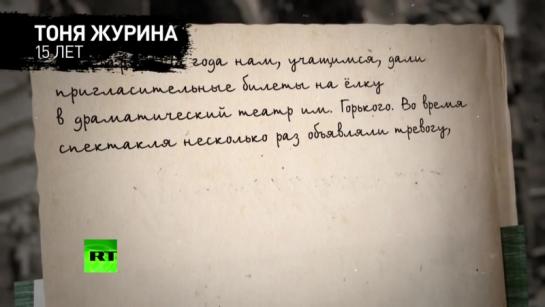 ТОНЯ ЖУРИНА
15 ЛЕТ
года нам, учащимся, дали
пригласительные билеты на ёлку
в драматический театр им. Горького. Во время
спектакля несколько раз объявляли тревогу,
RT